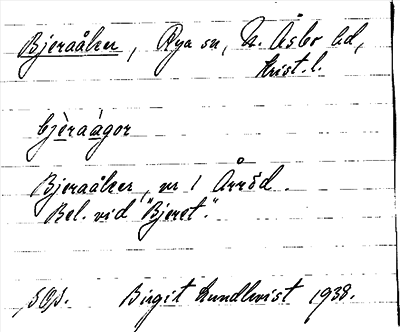 Bjeraåker, Rya sn, N. Åsbo hd,
Krist. l.
bjèraàgor
Bjeraåker, nr 1 Årröd.
Bel. vid "Bjeret."
Birgit Lundkvist 1938.